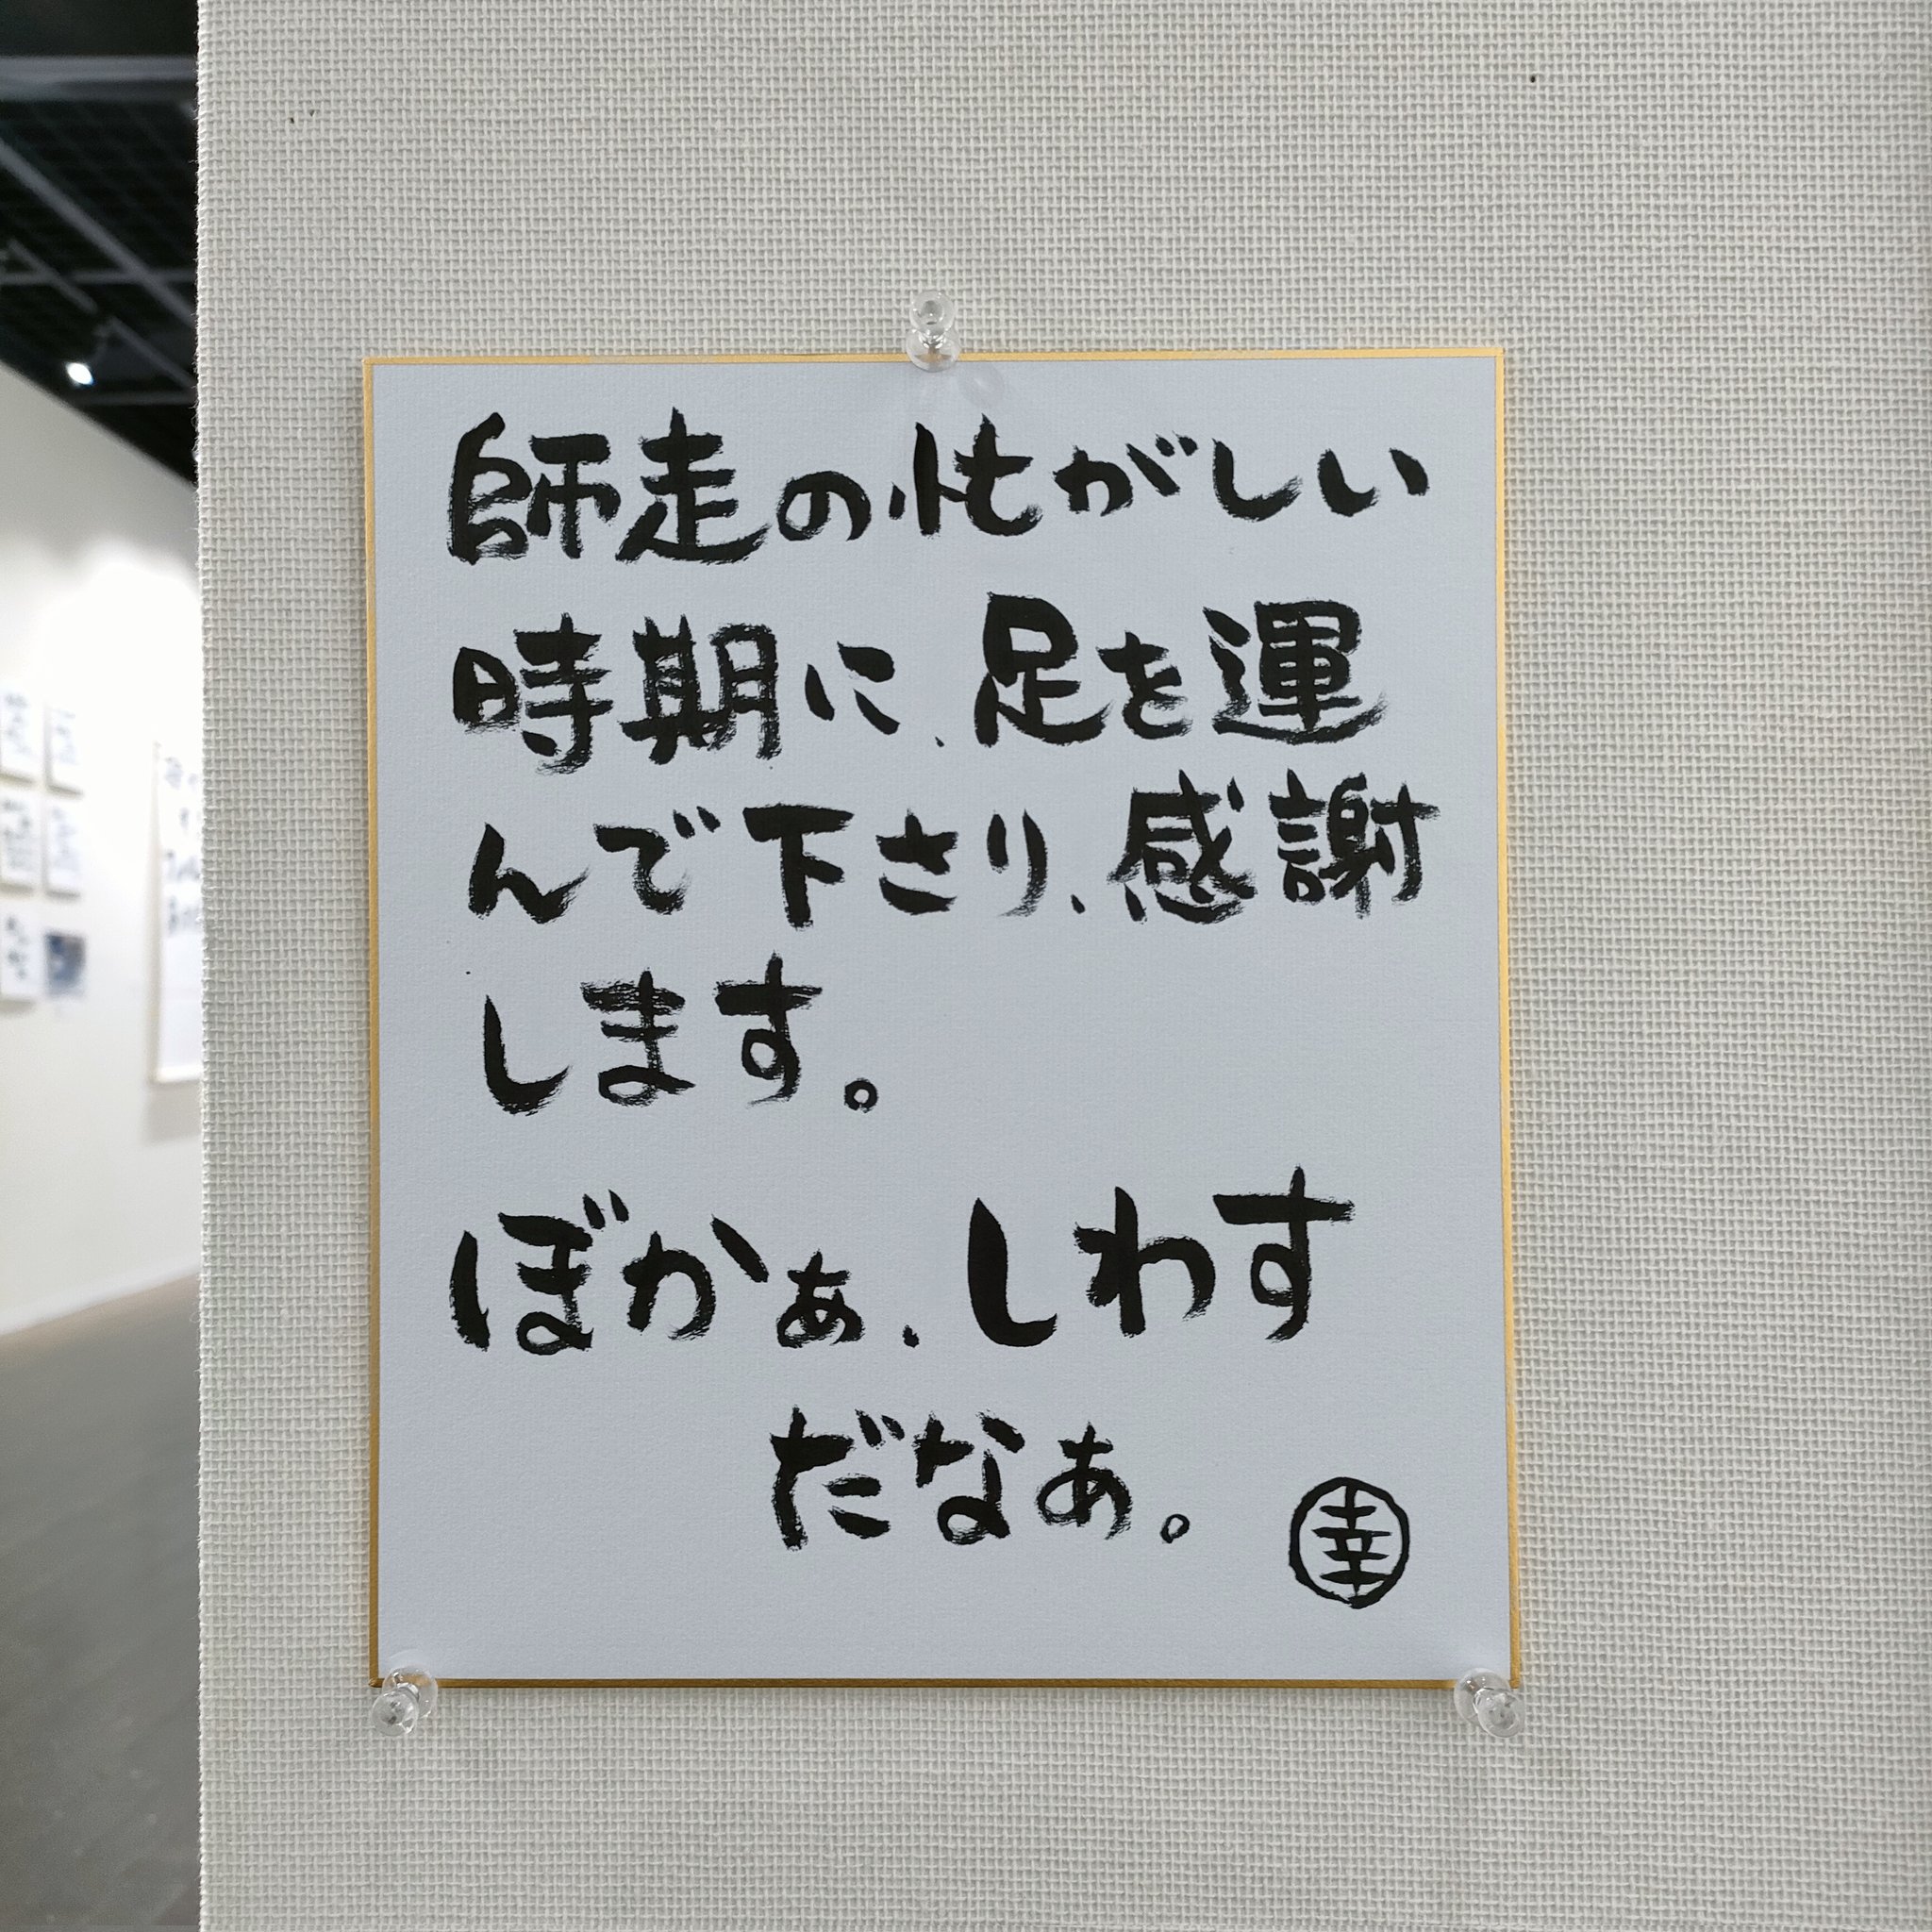 師走の忙がしい
時期に、足を運
んで下さり、感謝
します。
ぼかぁ、しわす
だなあ。
幸